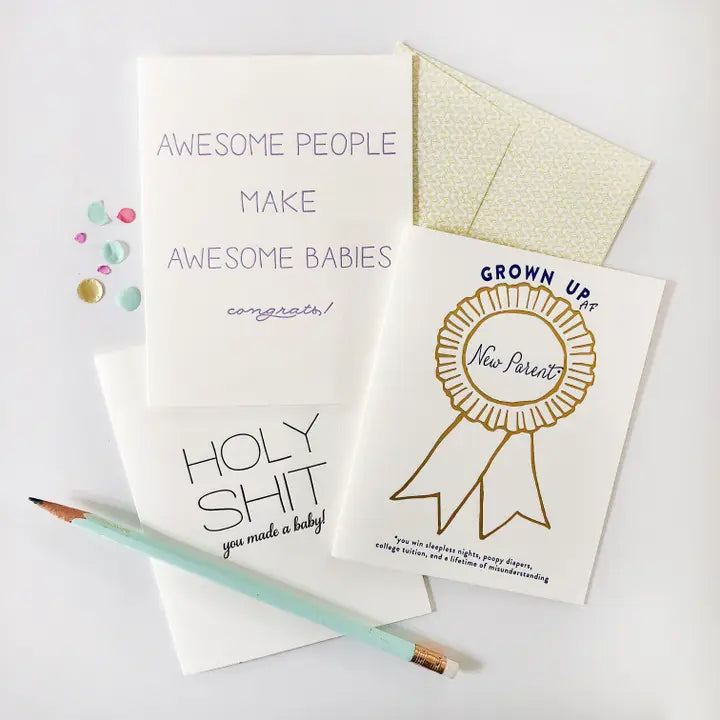 AWESOME PEOPLE
MAKE
AWESOME BABIES
congrats!
GROWN UP
AF
New Parent*
*you win sleepless nights, poopy diapers,
college tuition, and a lifetime of misunderstanding
HOLY
SHIT
you made a baby!